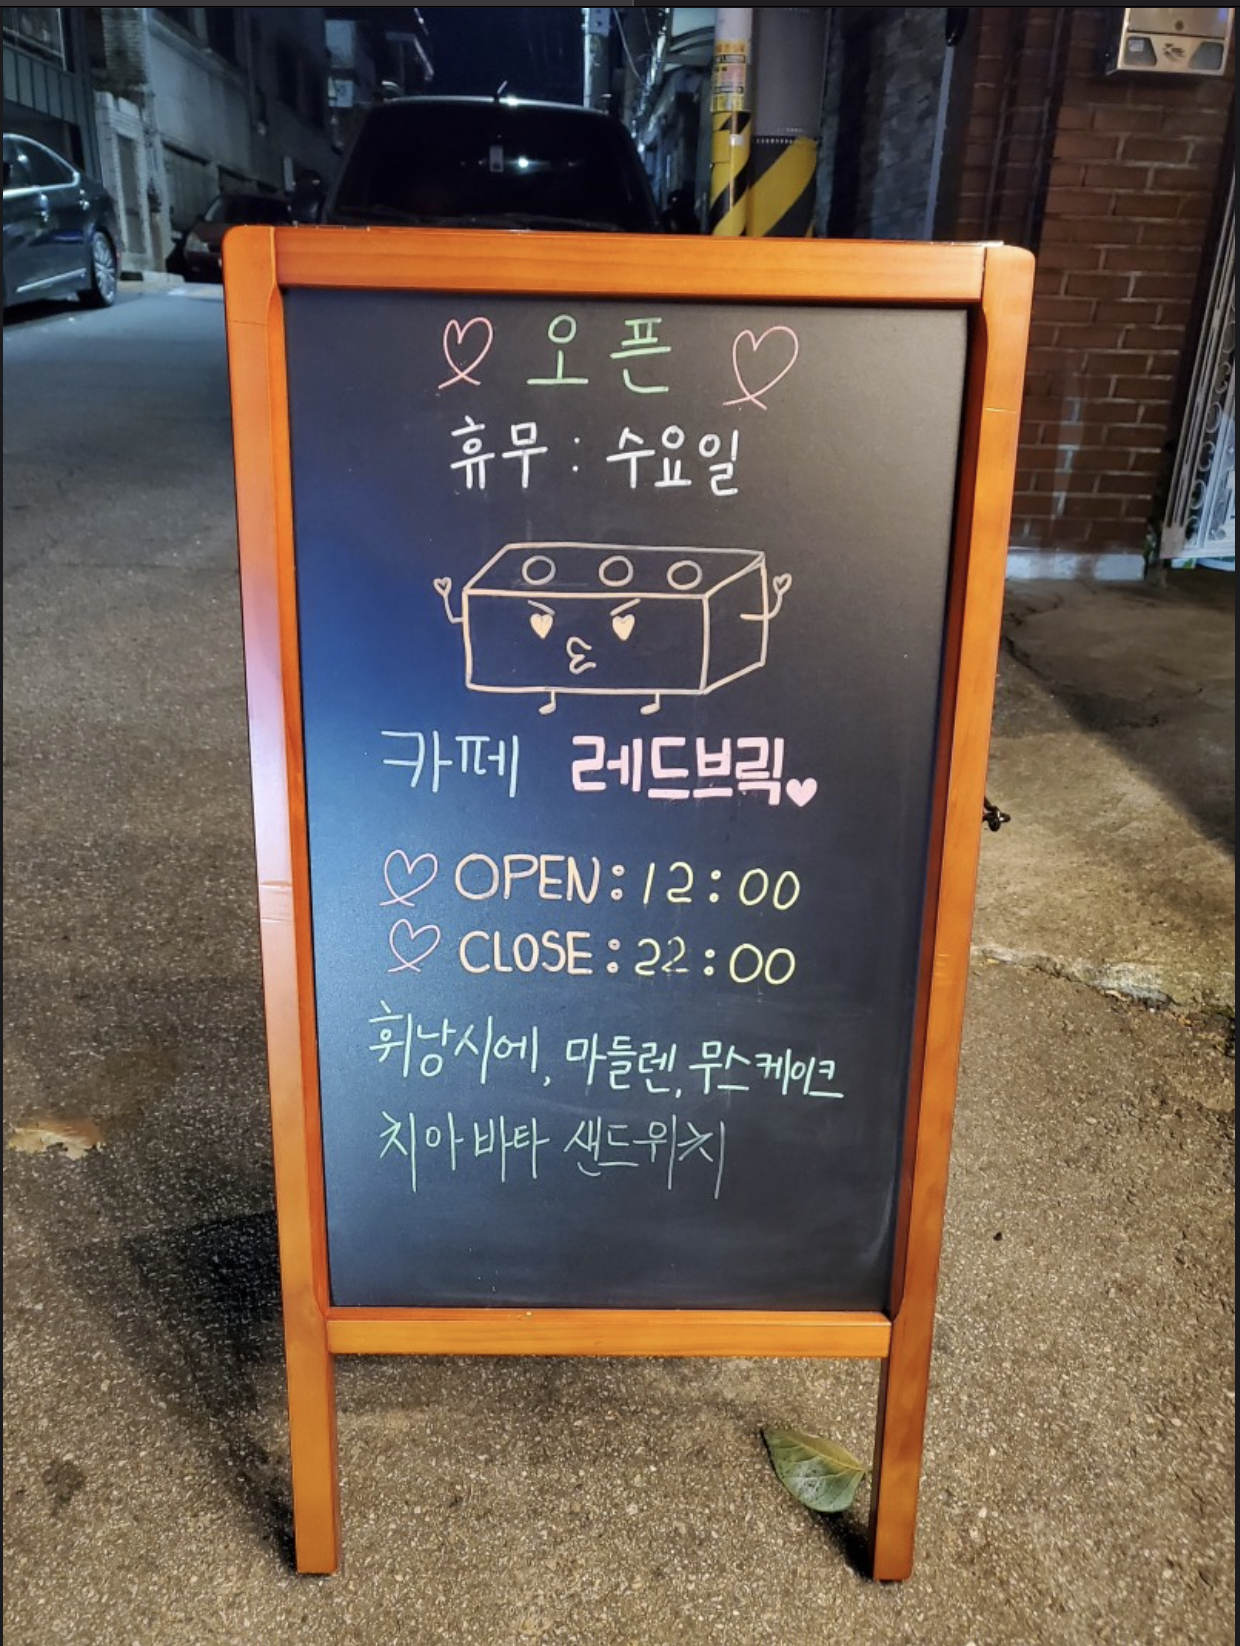 오픈
휴무 : 수요일
카페 레드브릭
OPEN : 12 : 00
CLOSE : 22 : 00
휘낭시에, 마들렌, 무스케이크
치아바타 샌드위치